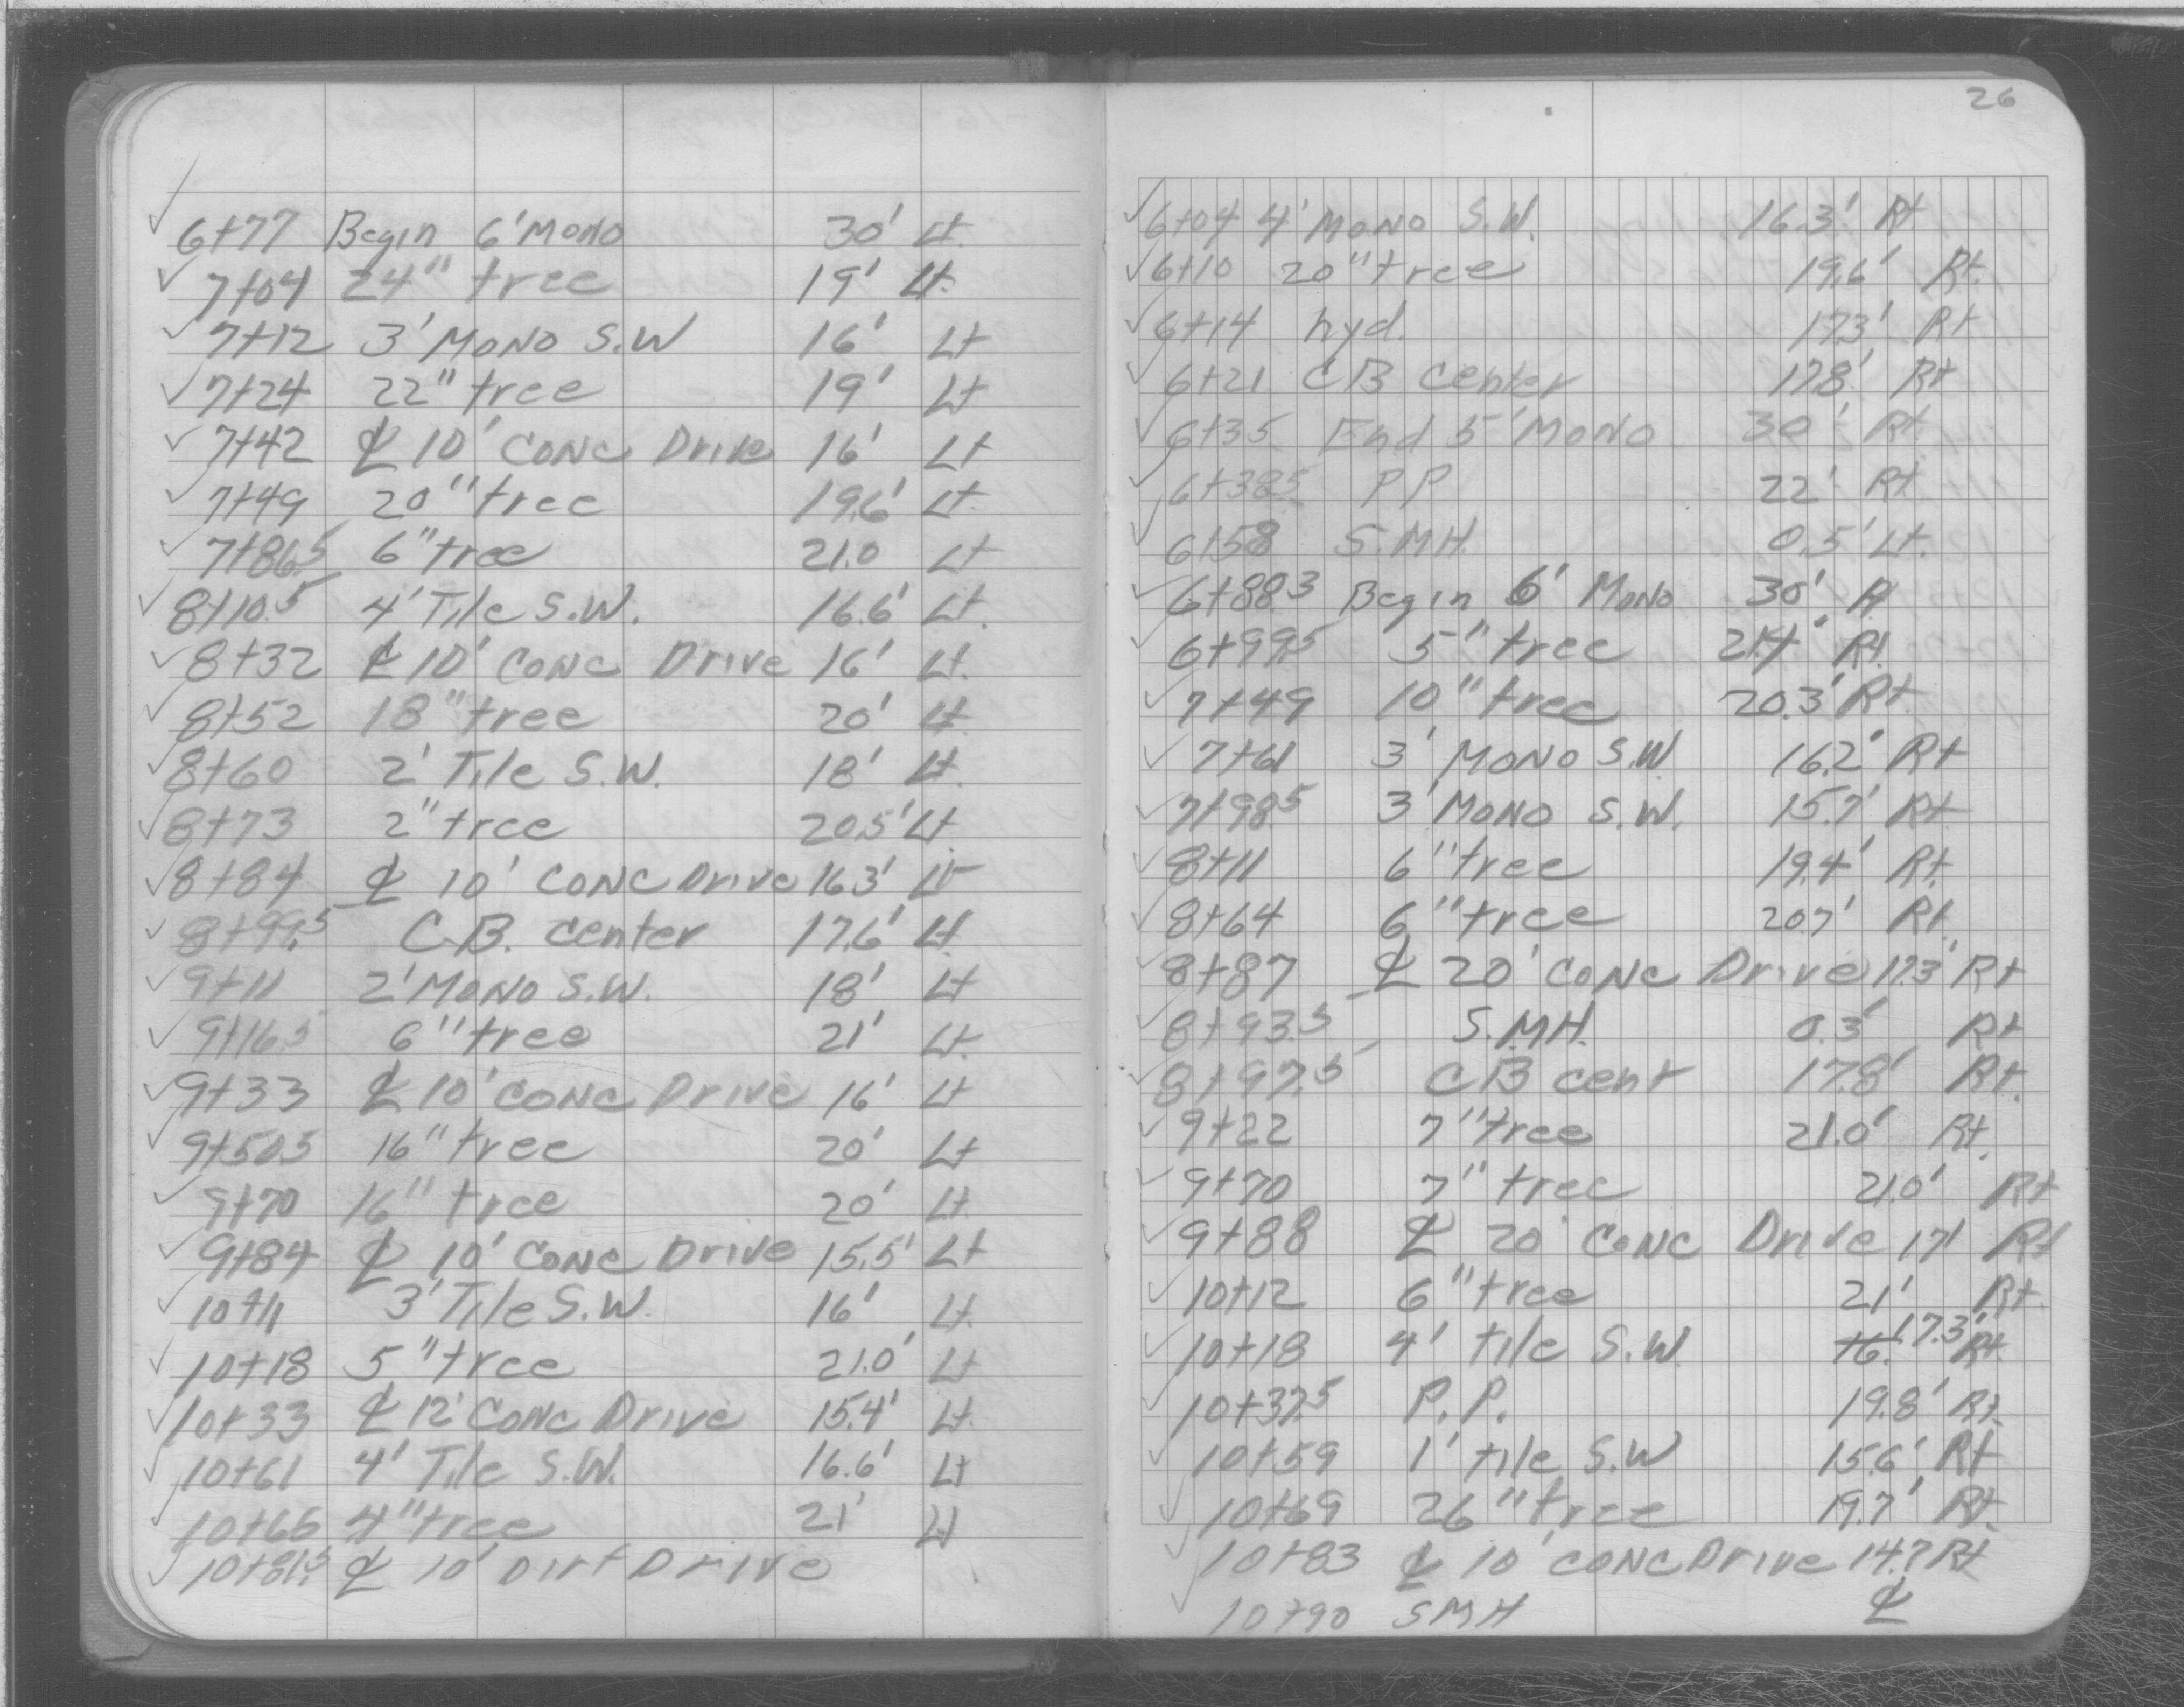 6+77 Begin 6' Mono 30' Lt.
7+04 24" tree 19' Lt.
7+12 3' Mono S.W 16' Lt
7+24 22" tree 19' Lt
7+42 ℄ 10' Conc Drive 16' Lt
7+49 20" tree 19.6' Lt.
7+86.5 6" tree 21.0 Lt
8+10.5 4' Tile S.W. 16.6' Lt.
8+32 ℄ 10' Conc Drive 16' Lt.
8+52 18" tree 20' Lt
8+60 2' Tile S.W. 18' Lt.
8+73 2" tree 20.5' Lt.
8+84 ℄ 10' Conc Drive 16.3' Lt
8+99.5 C.B. center 17.6' Lt
9+11 2' Mono S.W. 18' Lt
9+16.5 6" tree 21' Lt.
9+33 ℄ 10' Conc Drive 16' Lt
9+50.5 16" tree 20' Lt
9+70 16" tree 20' Lt.
9+84 ℄ 10' Conc Drive 15.5' Lt
10+11 3' Tile S.W. 16' Lt.
10+18 5" tree 21.0' Lt
10+33 ℄ 12' Conc Drive 15.4' Lt.
10+61 4' Tile S.W. 16.6' Lt
10+66 4" tree 21' Lt
10+81.5 ℄ 10' Dirt Drive
26
6+04 4' Mono S.W. 16.3' Rt
6+10 20" tree 19.6' Rt.
6+14 hyd. 17.3' Rt
6+21 CB center 17.8' Rt
6+35 End 5' Mono 30' Rt
6+38.5 PP 22' Rt
6+58 S.MH. 0.5' Lt.
6+88.3 Begin 6' Mono 30' R
6+99.5 5" tree 21.4' Rt.
7+49 10" tree 20.3' Rt
7+61 3' Mono S.W 16.2' Rt
7+98.5 3' Mono S.W. 15.7' Rt
8+11 6" tree 19.4' Rt.
8+64 6" tree 20.7' Rt.
8+87 ℄ 20' Conc Drive 17.3' Rt
8+93.5 S.MH. 0.3' Rt
8+97.5 CB cent 17.8' Rt.
9+22 7" tree 21.0' Rt.
9+70 7" tree 21.0' Rt
9+88 ℄ 20' Conc Drive 17' Rt
10+12 6" tree 21' Rt.
10+18 4' tile S.W 16. 17.3' Rt
10+37.5 P.P. 19.8' Rt.
10+59 1' tile S.W 15.6' Rt
10+69 26" tree 19.7' Rt.
10+83 ℄ 10' Conc Drive 14.7 Rt
10+90 SMH ℄